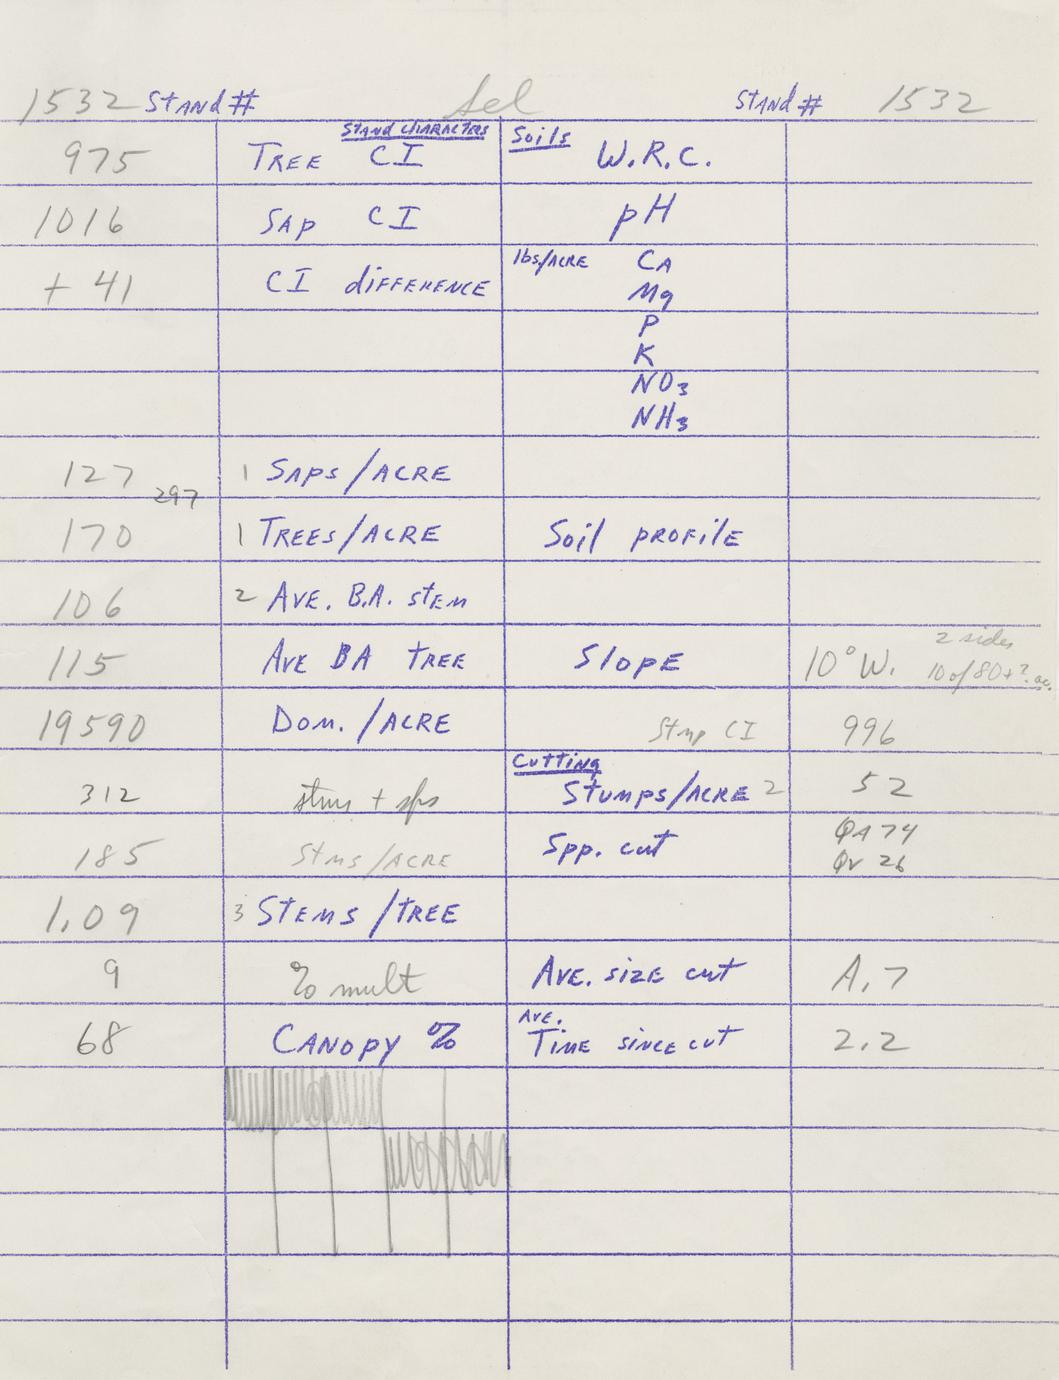 1532 Stand # Sel Stand # 1532
Stand Characters Soils
975 Tree CI W.R.C.
1016 Sap CI pH
lbs/Acre Ca
+ 41 CI difference
Mg
P
K
NO3
NH3
127 1 Saps/Acre
297
170 1 Trees/Acre Soil profile
106 2 Ave. B.A. stem
2 sides
115 Ave BA tree Slope 10° W. 10 of 80+? ac.
19590 Dom./Acre Stmp CI 996
Cutting
312 stms + sps Stumps/Acre 2 52
QA 74
185 Stms/Acre Spp. cut
Qv 26
1.09 3 Stems/tree
9 % mult Ave. size cut A.7
Ave.
68 Canopy % Time since cut 2.2